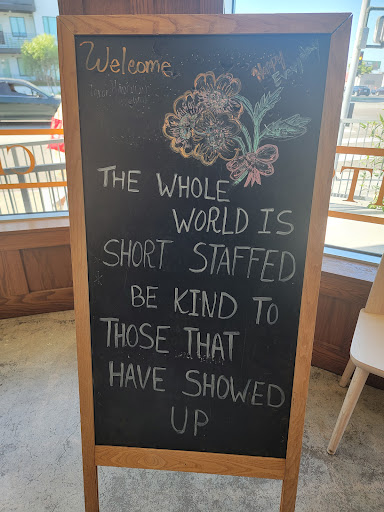 Welcome
THE WHOLE
WORLD IS
SHORT STAFFED
BE KIND TO
THOSE THAT
HAVE SHOWED
UP